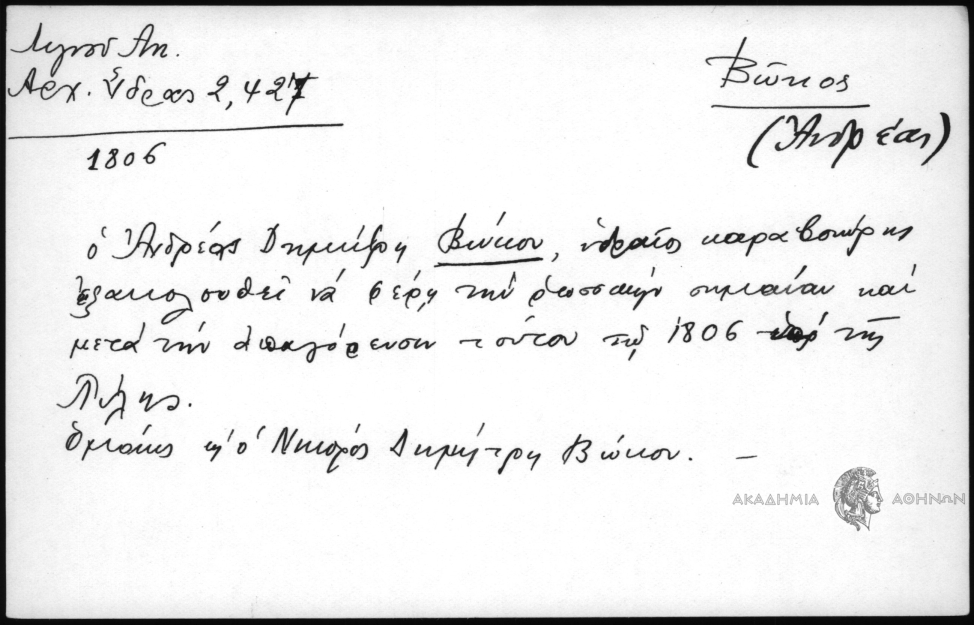 Λιγνοῦ Ἀν.
Ἀρχ. Ὕδρας 2,427
1806
Βῶκος
(Ἀνδρέας)
ὁ Ἀνδρέας Δημήτρη Βώκου, ὑδραῖος καραβοκύρης
ἐξακολουθεῖ νά φέρῃ τήν ρωσσικήν σημαίαν καί
μετά τήν ἀπαγόρευσιν τούτου τῷ 1806 ὑπό τῆς
Πύλης.
ὁμοίως κι' ὁ Νικολός Δημήτρη Βώκου. –
ΑΚΑΔΗΜΙΑ ΑΘΗΝΩΝ